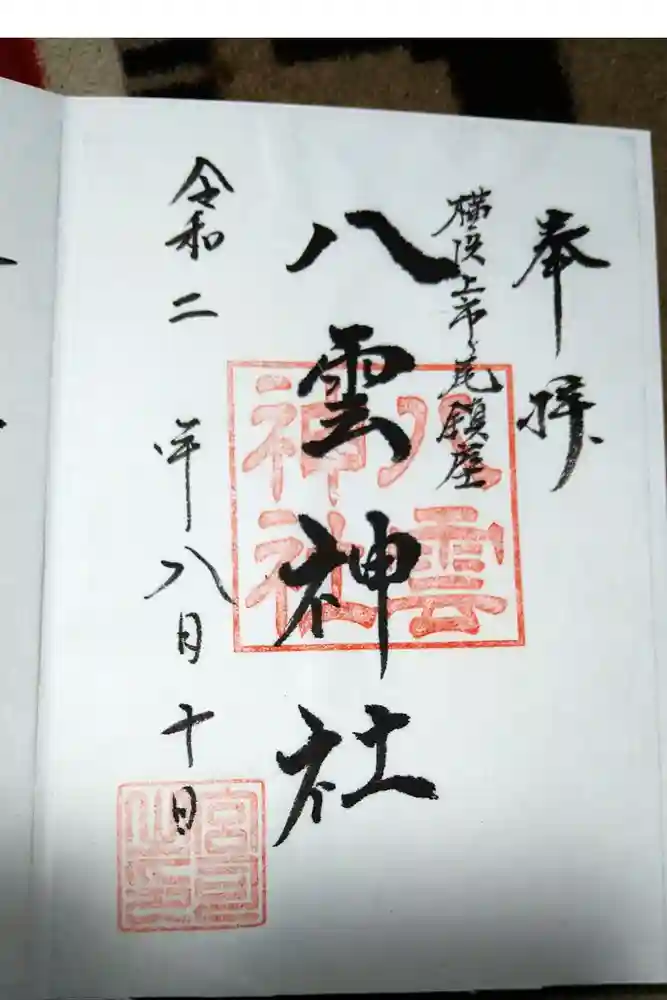 奉拝
横浜上市ヶ尾鎮座
八雲神社
八雲神社
令和二年八月十日
宮司之印